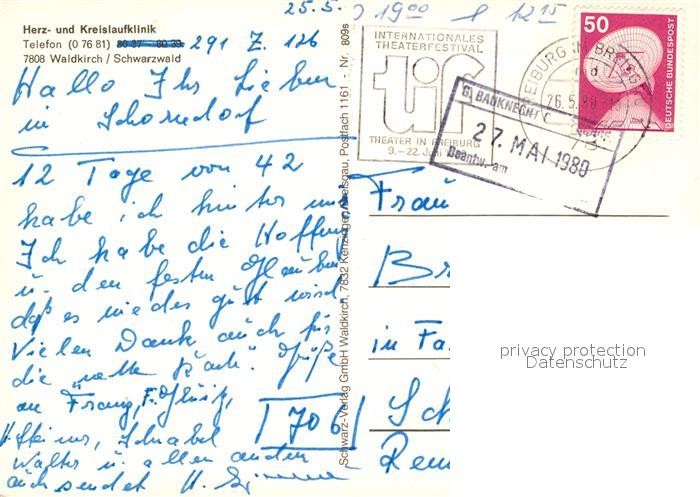 25.5. 19⁰⁰ 12¹⁵
Herz- und Kreislaufklinik
Telefon (0 76 81) 80 37 80 39 291 Z. 126
7808 Waldkirch / Schwarzwald
Hallo Ihr Lieben
in Schorndorf
12 Tage von 42
habe ich hinter mir
Ich habe die Hoffnung
u. den festen Glauben
daß es wieder gut wird
Vielen Dank auch für
die nette Grüße
an Franz,
Schnabel
Walter u. allen anderen
auch sendet H.
Schwarz-Verlag GmbH Waldkirch, 7832 Kenzingen/Breisgau, Postfach 1161 - Nr. 809s
INTERNATIONALES
THEATERFESTIVAL
tif
THEATER IN FREIBURG
9.–22. Juni
FREIBURG IM BREISGAU
26.5.80
50
DEUTSCHE BUNDESPOST
G. BAUKNECHT
27. MAI 1980
Beantw. am
Frau
Br
in Fa.
706
Sch
Rem
privacy protection
Datenschutz